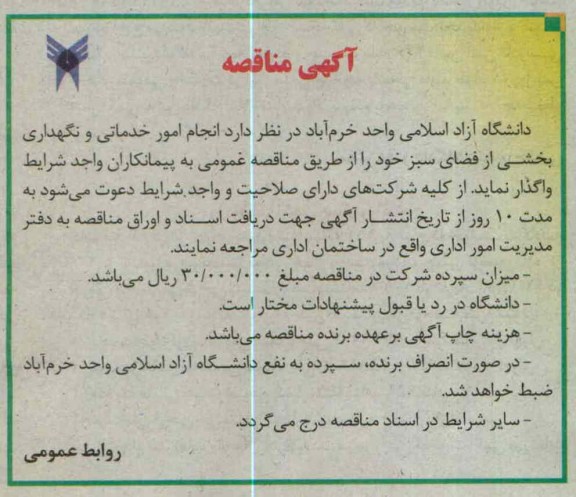 آگهی مناقصه
دانشگاه آزاد اسلامی واحد خرم‌آباد در نظر دارد انجام امور خدماتی و نگهداری
بخشی از فضای سبز خود را از طریق مناقصه عمومی به پیمانکاران واجد شرایط
واگذار نماید. از کلیه شرکت‌های دارای صلاحیت و واجد شرایط دعوت می‌شود به
مدت ۱۰ روز از تاریخ انتشار آگهی جهت دریافت اسناد و اوراق مناقصه به دفتر
مدیریت امور اداری واقع در ساختمان اداری مراجعه نمایند.
- میزان سپرده شرکت در مناقصه مبلغ ۳۰/۰۰۰/۰۰۰ ریال می‌باشد.
- دانشگاه در رد یا قبول پیشنهادات مختار است.
- هزینه چاپ آگهی برعهده برنده مناقصه می‌باشد.
- در صورت انصراف برنده، سپرده به نفع دانشگاه آزاد اسلامی واحد خرم‌آباد
ضبط خواهد شد.
- سایر شرایط در اسناد مناقصه درج می‌گردد.
روابط عمومی